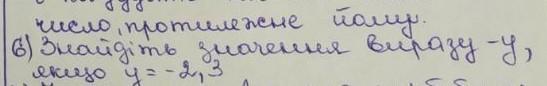 число, протилежне йому.
6) Знайдіть значення виразу -y,
якщо y = -2,3